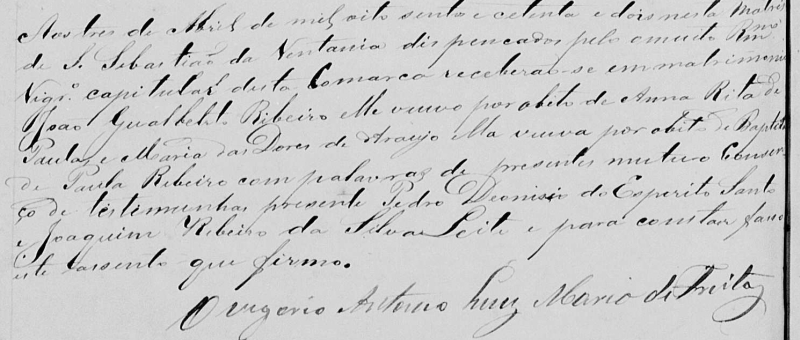 Aos tres de Abril de mil oito sento e cetenta e dois nesta Matris
de S. Sebastião da Ventania dispencados pelo omuito Rmo
Vigro. capitular desta Comarca receberão-se em matrimonio
João Gualbelto Ribeiro Elle viuvo por obito de Anna Rita de
Paula, e Maria das Dores de Araujo Ella viuva por obito de Baptista
de Paula Ribeiro com palavras de presentes mutuo Conser-
ço de testemunhas presente Pedro Dionisio do Esperito Santo
e Joaquim Ribeiro da Silva Leite e para constar faso
este assento que firmo.
O Vigerio Antonio Luiz Maria de Freitas